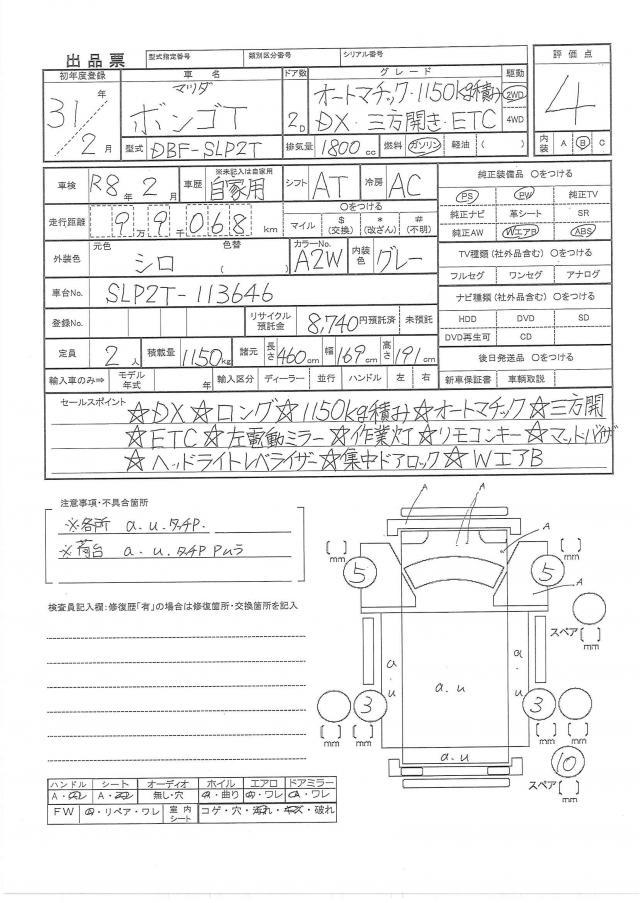 出品票 型式指定番号 類別区分番号 シリアル番号
初年度登録 車名 ドア数 グレード 駆動 評価点
31年 マツダ 2D オートマチック・1150kg積み 2WD 4
2月 ボンゴT DX・三方開き・ETC 4WD
型式 DBF-SLP2T 排気量 1800cc 燃料 ガソリン 軽油 ( ) 内装 A B C
車検 R8年2月 車歴 ※未記入は自家用 自家用 シフト AT 冷房 AC 純正装備品 〇をつける
PS PW 純正TV
走行距離 9万9千068km 〇をつける マイル $(交換) *(改ざん) #(不明) 純正ナビ 革シート SR
純正AW WエアB ABS
外装色 元色 シロ 色替 ( ) カラーNo. A2W 内装色 グレー TV種類(社外品含む)〇をつける
フルセグ ワンセグ アナログ
車台No. SLP2T-113646 ナビ種類(社外品含む)〇をつける
登録No. リサイクル預託金 8,740円預託済 未預託 HDD DVD SD
DVD再生可 CD
定員 2人 積載量 1150kg 諸元 長さ460cm 幅169cm 高さ191cm 後日発送品 〇をつける
輸入車のみ⇒ モデル年式 年 輸入区分 ディーラー 並行 ハンドル 左 右 新車保証書 車輌取説
セールスポイント ☆DX☆ロング☆1150kg積み☆オートマチック☆三方開
☆ETC☆左電動ミラー☆作業灯☆リモコンキー☆マット・バイザ
☆ヘッドライトレベライザー☆集中ドアロック☆WエアB
注意事項・不具合箇所
※各所 a.u.タッチP.
※荷台 a.u.タッチP Pムラ
検査員記入欄:修復歴「有」の場合は修復箇所・交換箇所を記入
A A
A
[ ]mm [ ]mm
5 5
A
スペア[ ]mm
a.u a.u a.u
3 3
[ ]mm [ ]mm
a.u
10
スペア[ ]mm
ハンドル シート オーディオ ホイル エアロ ドアミラー
A・ A・ 無し・穴 ・曲り ・ワレ ・ワレ
FW ・リペア・ワレ 室内シート コゲ・穴・汚れ・キズ・破れ